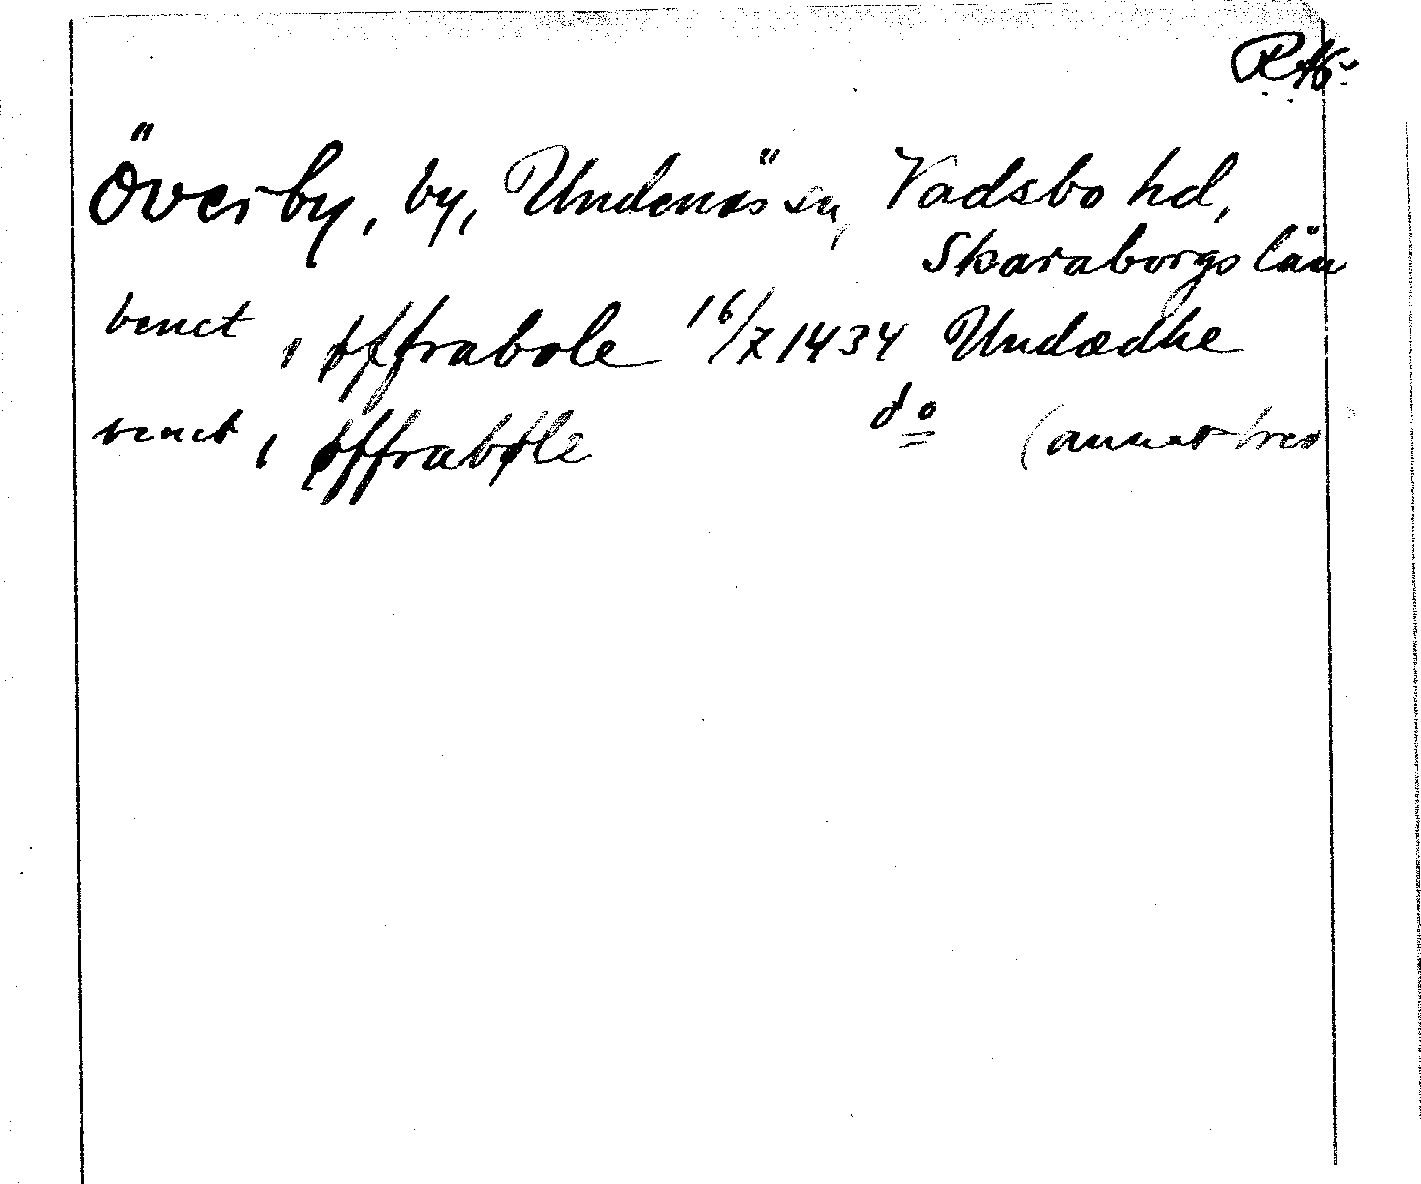 RA
Överby, by, Undenäs sn, Vadsbo hd,
Skaraborgs län
benct i øffrabole 16/7 1434 Undædhe
benct i øffrabøle do (annat brev